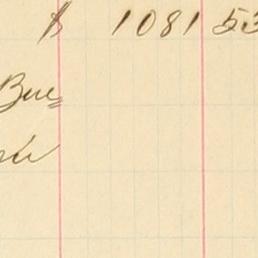 $ 1081 53
Bue